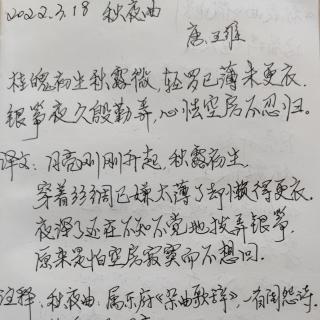 2022.3.18 秋夜曲
唐王维
桂魄初生秋露微,轻罗已薄未更衣.
银筝夜久殷勤弄,心怯空房不忍归.
译文:月亮刚刚升起,秋露初生.
穿着丝绸已嫌太薄了却懒得更衣.
夜深了还在不知不觉地拨弄银筝.
原来是怕空房寂寞而不想回.
注释:秋夜曲:属乐府《杂曲歌辞》,一有闺怨诗.